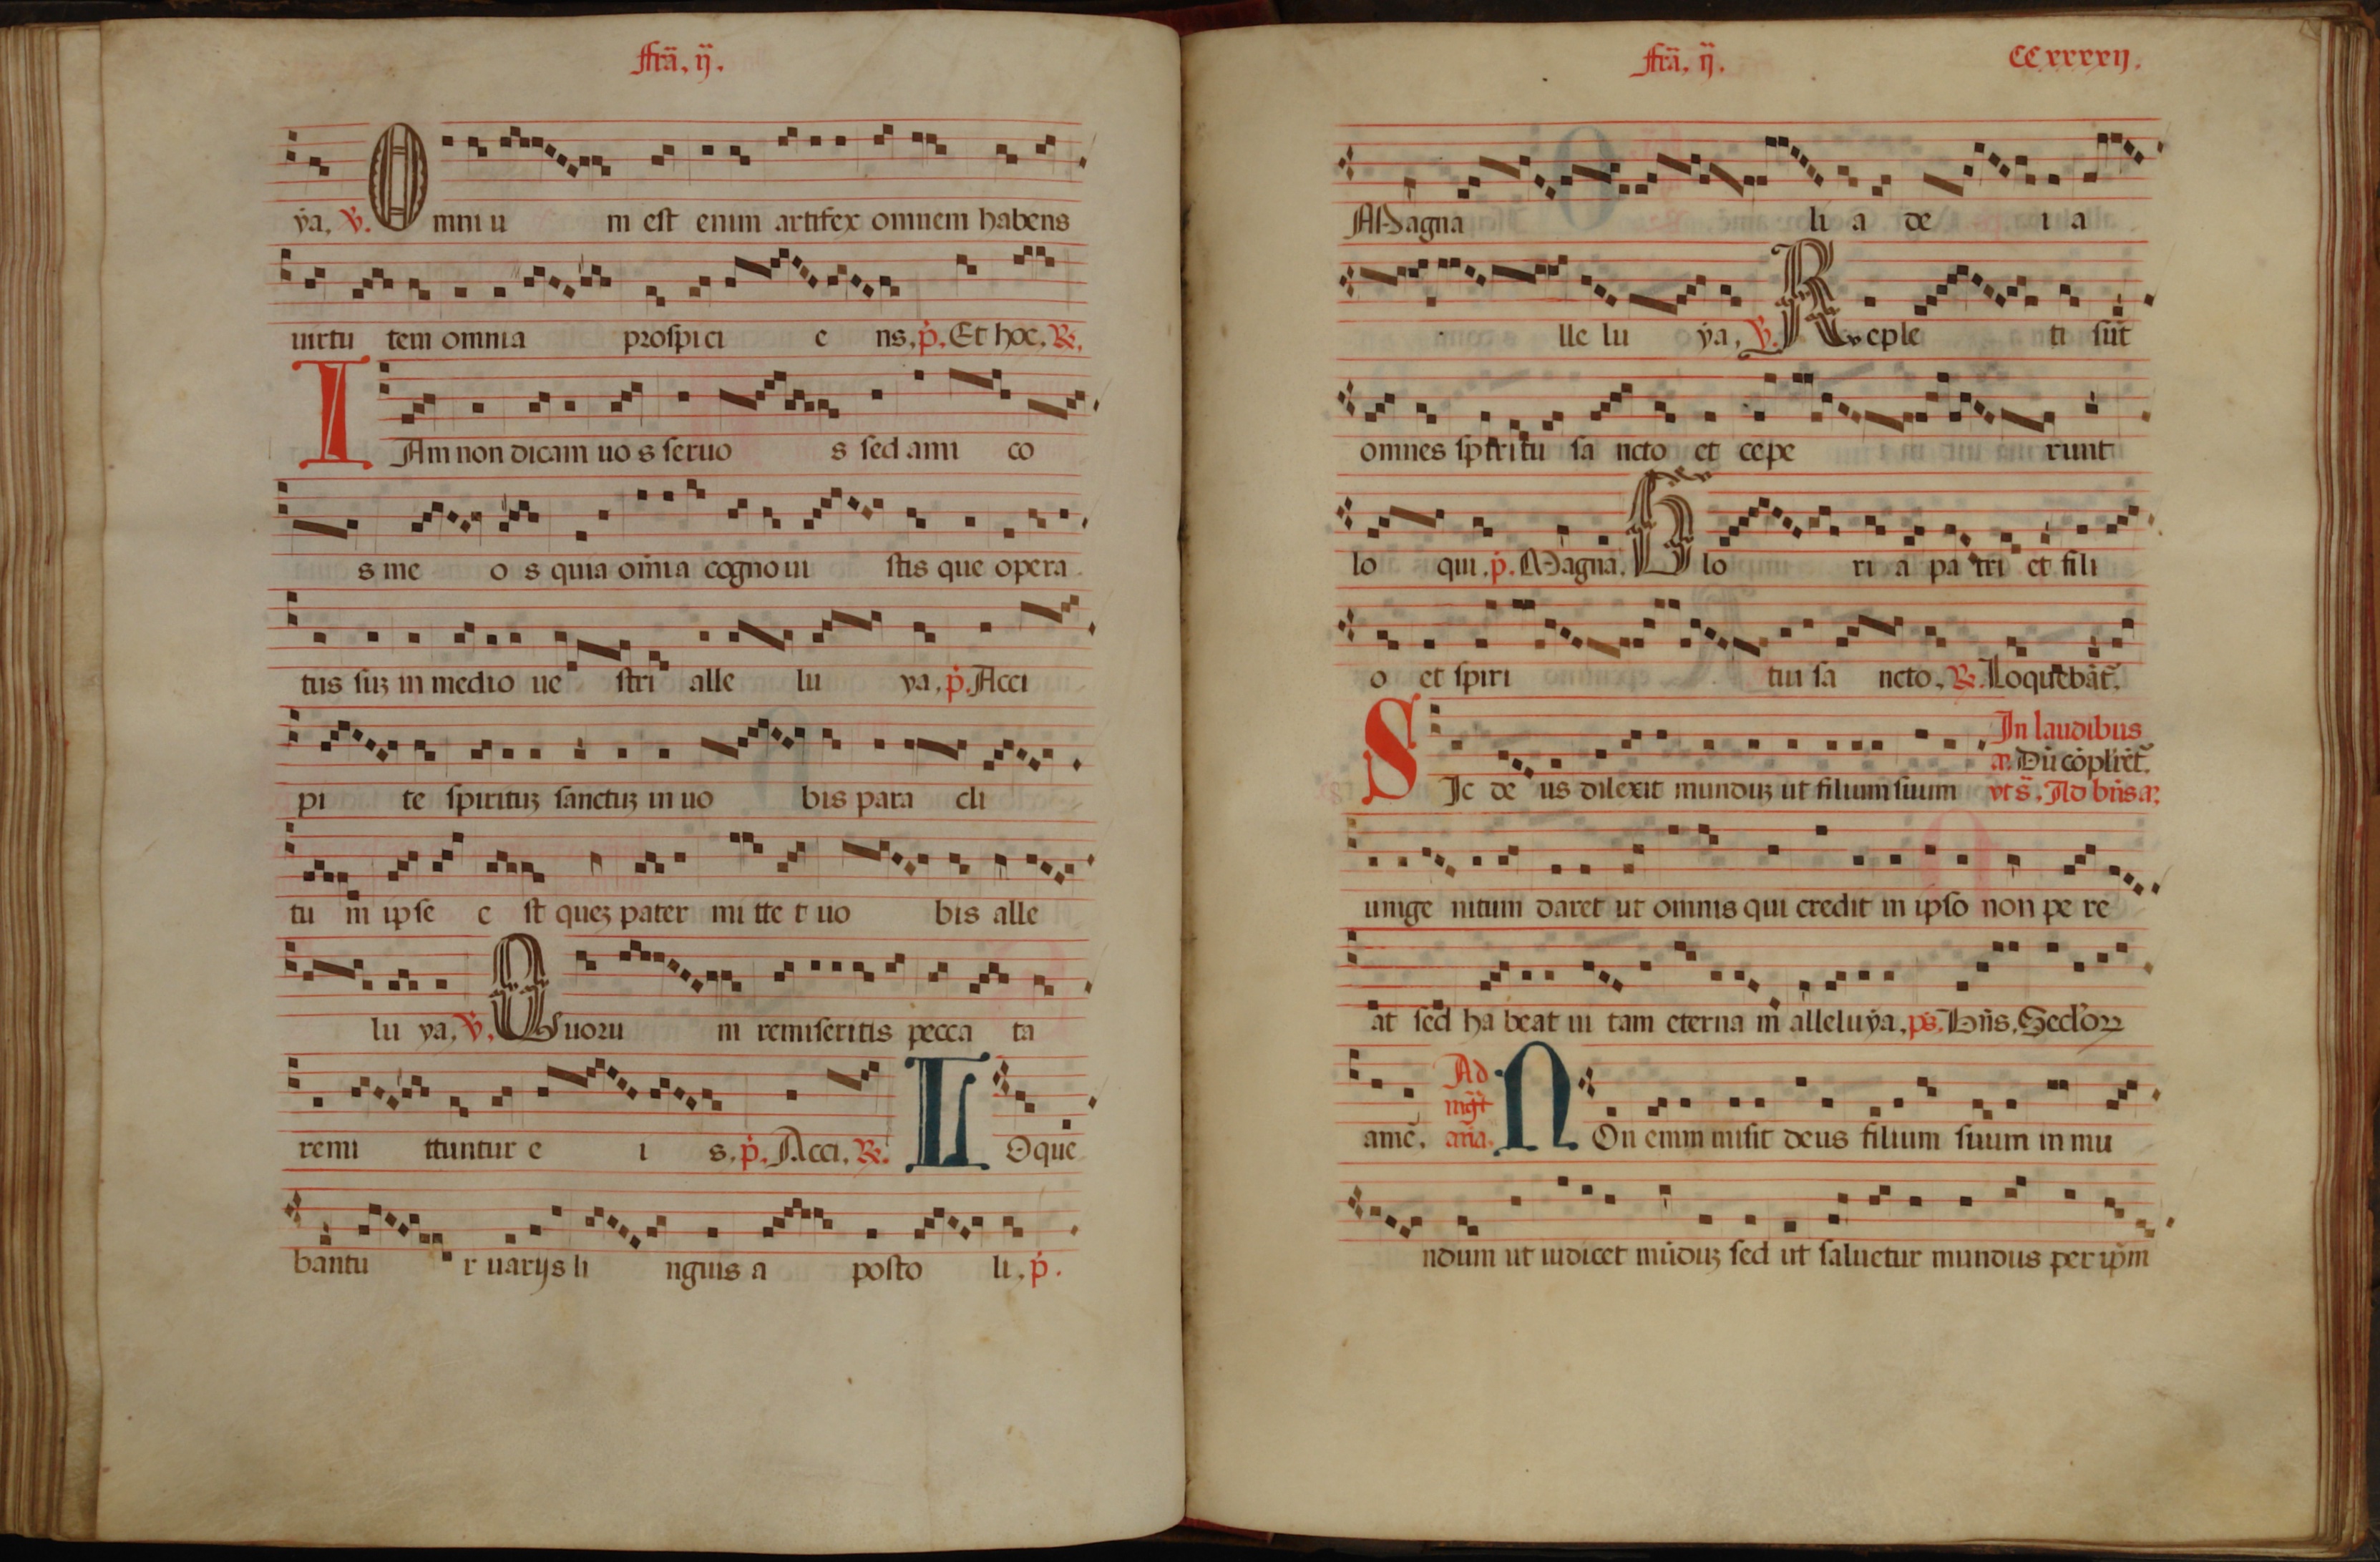 ffra. ij.
ya. V. Omniu m est enim artifex omnem habens
uirtu tem omnia prospici e ns. p. Et hoc. R.
IAm non dicam uo s seruo s sed ami co
s me o s quia omia cognoui stis que opera
tus suz in medio ue stri alle lu ya. p. Acci
pi te spirituz sanctuz in uo bis para cli
tu m ipse e st quez pater mi tte t uo bis alle
lu ya. V. Quoru m remiseritis pecca ta
remi ttuntur e i s. p. Acci. R. LOque
bantu r uarijs li nguis a posto li. p.
ffra. ij. CCxxxxij.
Magna li a de i a
lle lu ya. V. Reple ti sut
omnes spiritu sa ncto et cepe runt
lo qui. p. Magna. Glo ri a pa tri et fili
o et spiri tui sa ncto. R. Loquebat.
In laudibus
a. Du coplret.
SIc de us dilexit munduz ut filium suum vt s. Ad bns a.
unige nitum daret ut omnis qui credit in ipso non pe re
at sed ha beat ui tam eterna m alleluya. ps. Bns. Seclor
Ad
mgt
ame. ana. NOn enim misit deus filium suum in mu
ndum ut iudicet muduz sed ut saluetur mundus per ipm